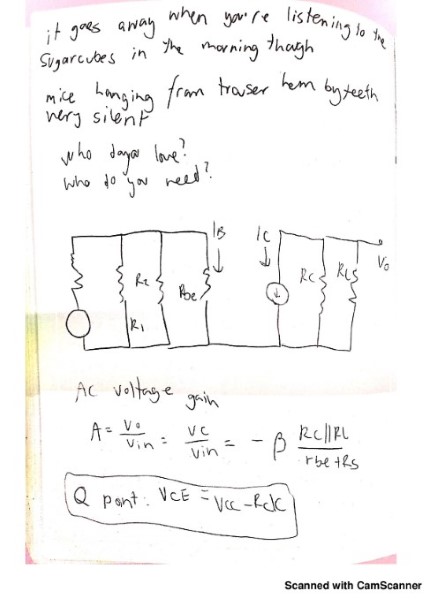 it goes away when you're listening to the
Sugarcubes in the morning though
mice hanging from trouser hem by teeth
very silent
who do you love?
who do you need?
IB
IC
R2
Rbe
RC
RL
Vo
R1
AC voltage gain
A = Vo/Vin = VC/Vin = - β RC||RL/rbe+Rs
Q point: VCE = VCC - RcIC
Scanned with CamScanner